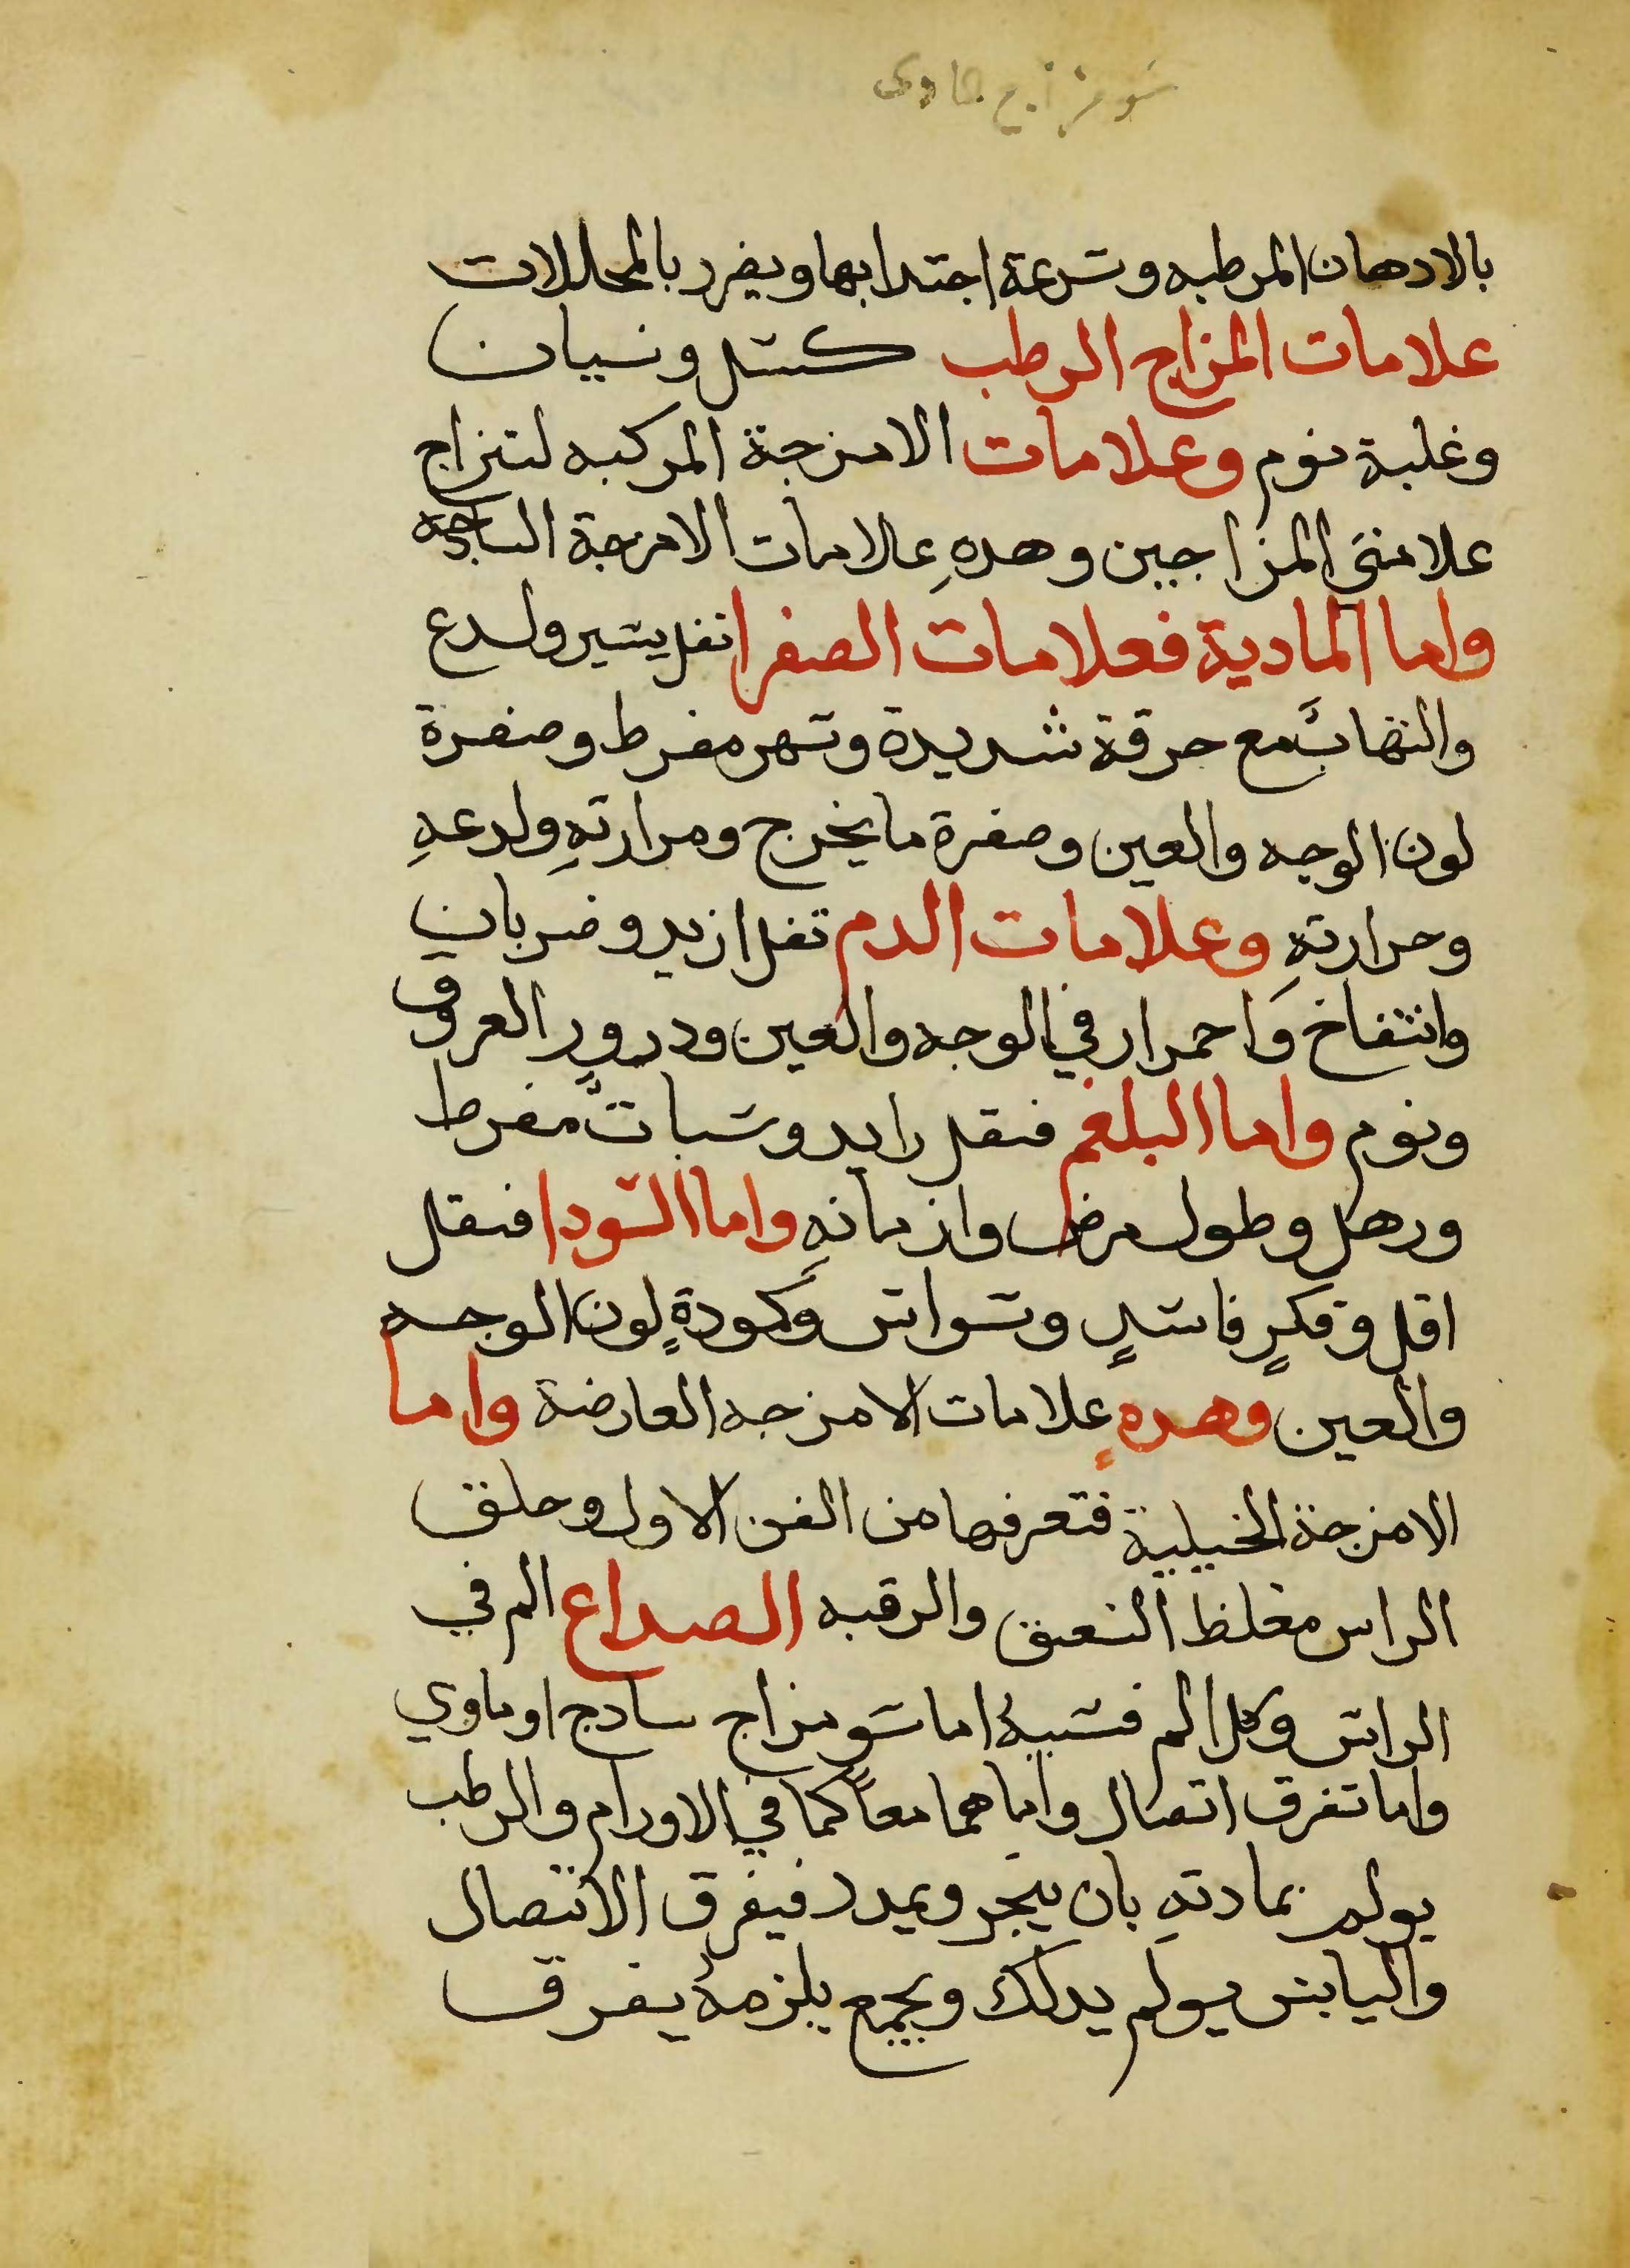 سو مزاج مادى
بالادهان المرطبه وسرعة اجتدابها ويضرر بالمحللات
علامات المزاج الرطب كسل ونسيان
وغلبة نوم وعلامات الامزجة المركبه لتنزاج
علامتي المزاجين وهدهِ علامات الامزجة الساجه
واما المادية فعلامات الصفرا تفل يسير ولدع
والتهابٌ مع حرقة شديدة وسهر مفرط وصفرة
لون الوجه والعين وصفرة ما يخرج ومرارتهِ ولدعهِ
وحرارتهِ وعلامات الدم تفل ازيد وضربان
وانتفاخ وَاحمرار في الوجه والعين ودرورٍ العروق
ونوم واما البلغم فتقل زايد وسباتٌ مفرط
ورهل وطول مرض وازمانهِ واما السودا فتقل
اقل وفكرٍ فاسدٍ وسواس وَكمودةٍ لون الوجه
والعين وهدهِ علامات الامزجه العارضة واما
الامزجة الخيلية فتعرفها من الفن الاول وحلق
الراس مغلظ العنق والرقبه الصداع الم في
الراس وكل الم فسببهُ اما سو مزاج سادج او ماوي
واما تفرق اتصال واما هما معاً كما في الاورام والرطب
يولم بمادتهِ بان يبخر ويمدد فيفرق الاتصال
واليابس يولم يدلك ويجمع يلزمهُ يفرق